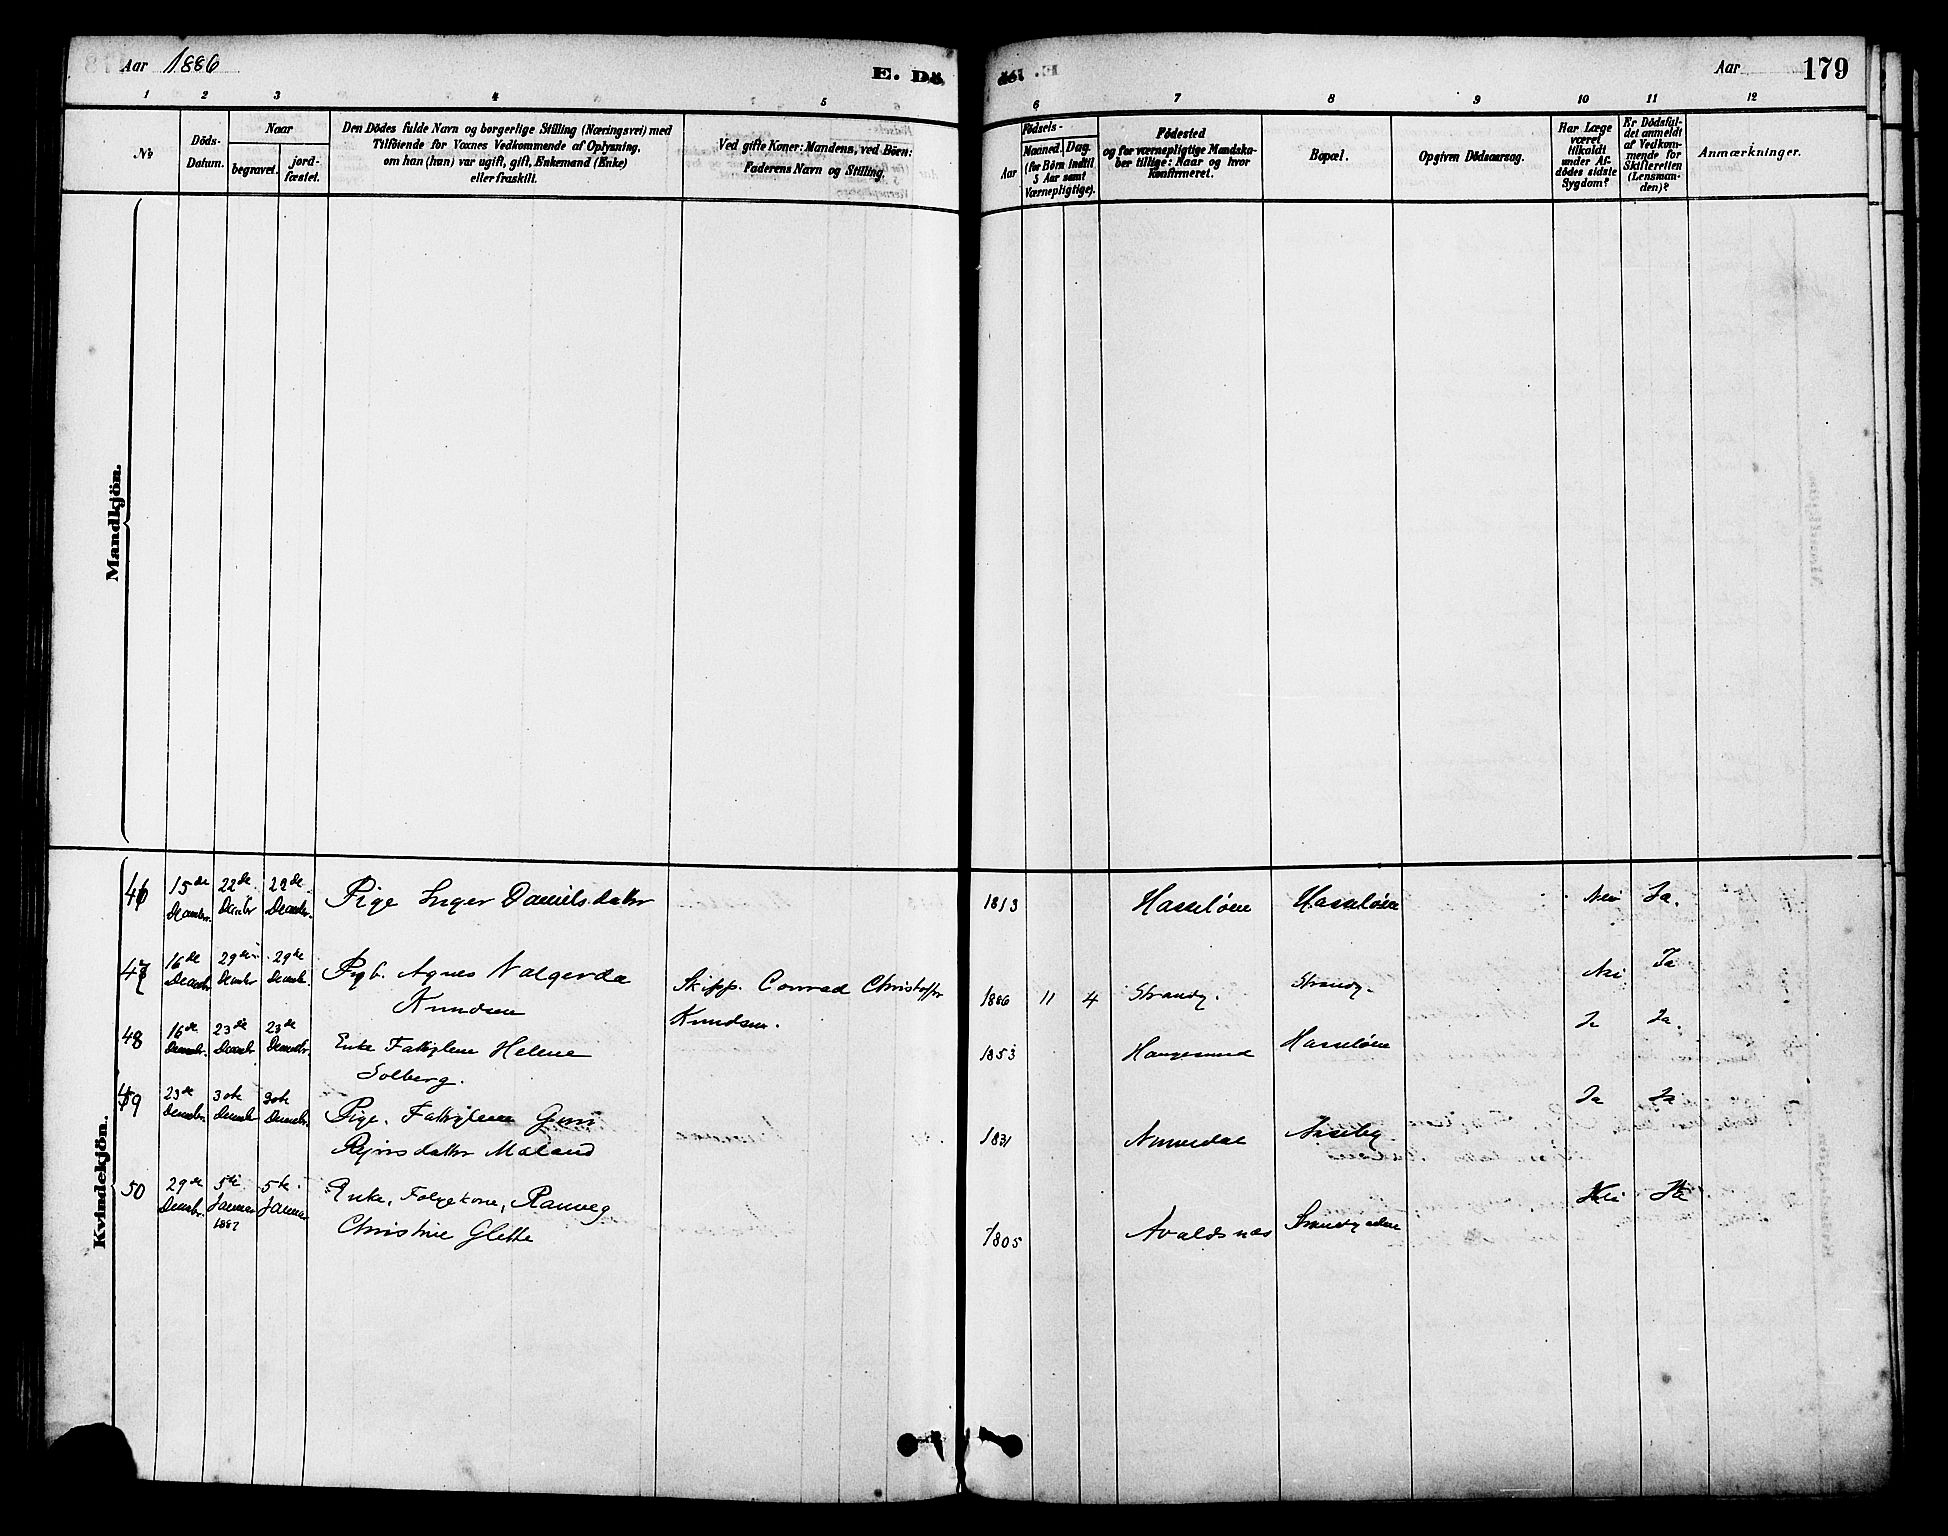 Aar 1886
E. Dö
döi
Aar
179
1 2 3 4 5 6 7 8 9 10 11 12
№
Döds-
Datum.
Naar
begravet.
jord-
fæstet.
Den Dödes fulde Navn og borgerlige Stilling (Næringsvei) med
Tilföiende for Voxnes Vedkommende af Oplysning,
om han (hun) var ugift, gift, Enkemand (Enke)
eller fraskilt.
Ved gifte Koner: Mandens, ved Börn:
Faderens Navn og Stilling.
Födsels-
Aar
Maaned.
Dag.
(for Börn indtil
5 Aar samt
Værnepligtige).
Födested
og for værnepligtige Mandska-
ber tillige: Naar og hvor
Konfirmeret.
Bopæl.
Opgiven Dödsaarsag.
Har Læge
været
tilkaldt
under Af-
dödes sidste
Sygdom?
Er Dödsfal-
det anmeldt
af Vedkom-
mende for
Skifteretten
(Lensman-
den)?
Anmærkninger.
Mandkjön.
Kvindekjön.
46 15de 22de 22de
Decembr. Decembr Decembr.
Pige Inger Danielsdatter 1813 Hasseløen Hasseløen Nei Ja.
47 16de 29de 29de
Decembr Decembr Decembr.
Pigb. Agnes Valgerda
Knudsen
Skipp. Conrad Christoffer
Knudsen.
1886 11 4 Strandg. Strandg. Nei Ja
48 16de 23de 23de
Decembr. Decembr Decembr.
Enke Fattiglem Helene
Solberg.
1853 Haugesund Hasseløen Ja Ja.
49 23de 30te 30te
Decembr. Decembr Decembr.
Pige. Fattiglem Guri
Maland
1831 Aaseby Ja Ja
50 29de 5te 5te
Decembr. Januar Januar
1887
Enke, Folgekone, Ranveg
Christine Glette
1805 Avaldsnæs Strandgaden Nei Ja